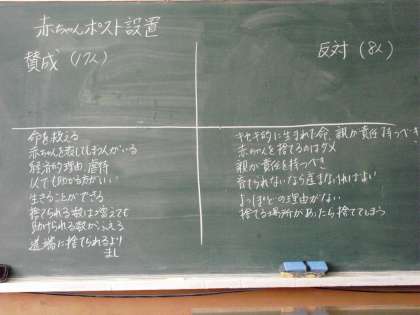 赤ちゃんポスト設置
賛成(17人)
反対(8人)
命を救える
赤ちゃんを殺してしまう人がいる
経済的理由、虐待
以ても助かる方がいい
生きることができる
捨てられる数は増えても
助けられる数がふえる
道端に捨てられるより
まし
キセキ的に生まれた命、親が責任持つべき
赤ちゃんを捨てるのはダメ
親が責任を持つべき
育てられないなら産まなければよい
よっぽどの理由がない
捨てる場所があったら捨ててしまう